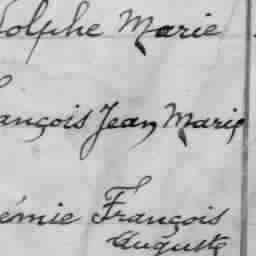 dolphe Marie
ançois Jean Marie
émie François
Auguste